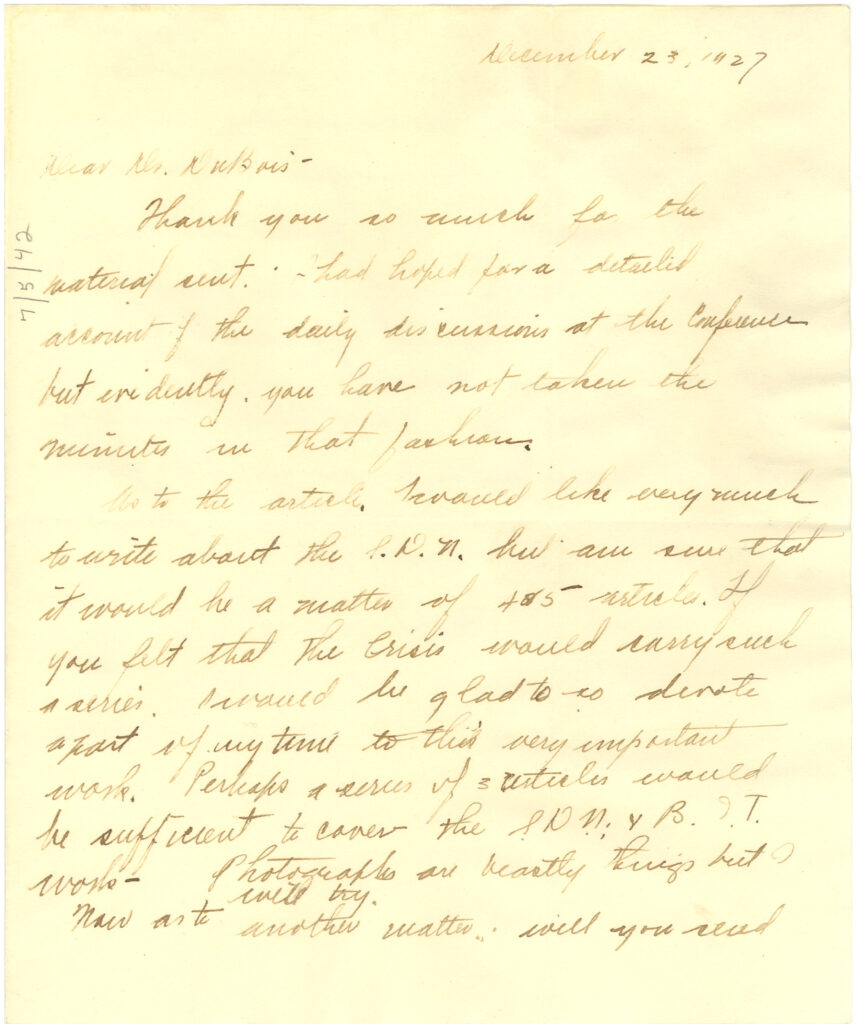 December 23, 1927
Dear Dr. DuBois-
Thank you so much for the
material sent. I had hoped for a detailed
account of the daily discussions at the Conference
but evidently. you have not taken the
minutes in that fashion.
As to the article. I would like very much
to write about the S.D.N. but am sure that
it would be a matter of 4 or 5 articles. If
you felt that the Crisis would carry such
a series. I would be glad to so devote
a part of my time to this very important
work. Perhaps a series of 3 articles would
be sufficient to cover the S.D.N. & B. I. T.
work- Photographs are beastly things but I
will try.
Now as to another matter. will you send
7/5/42